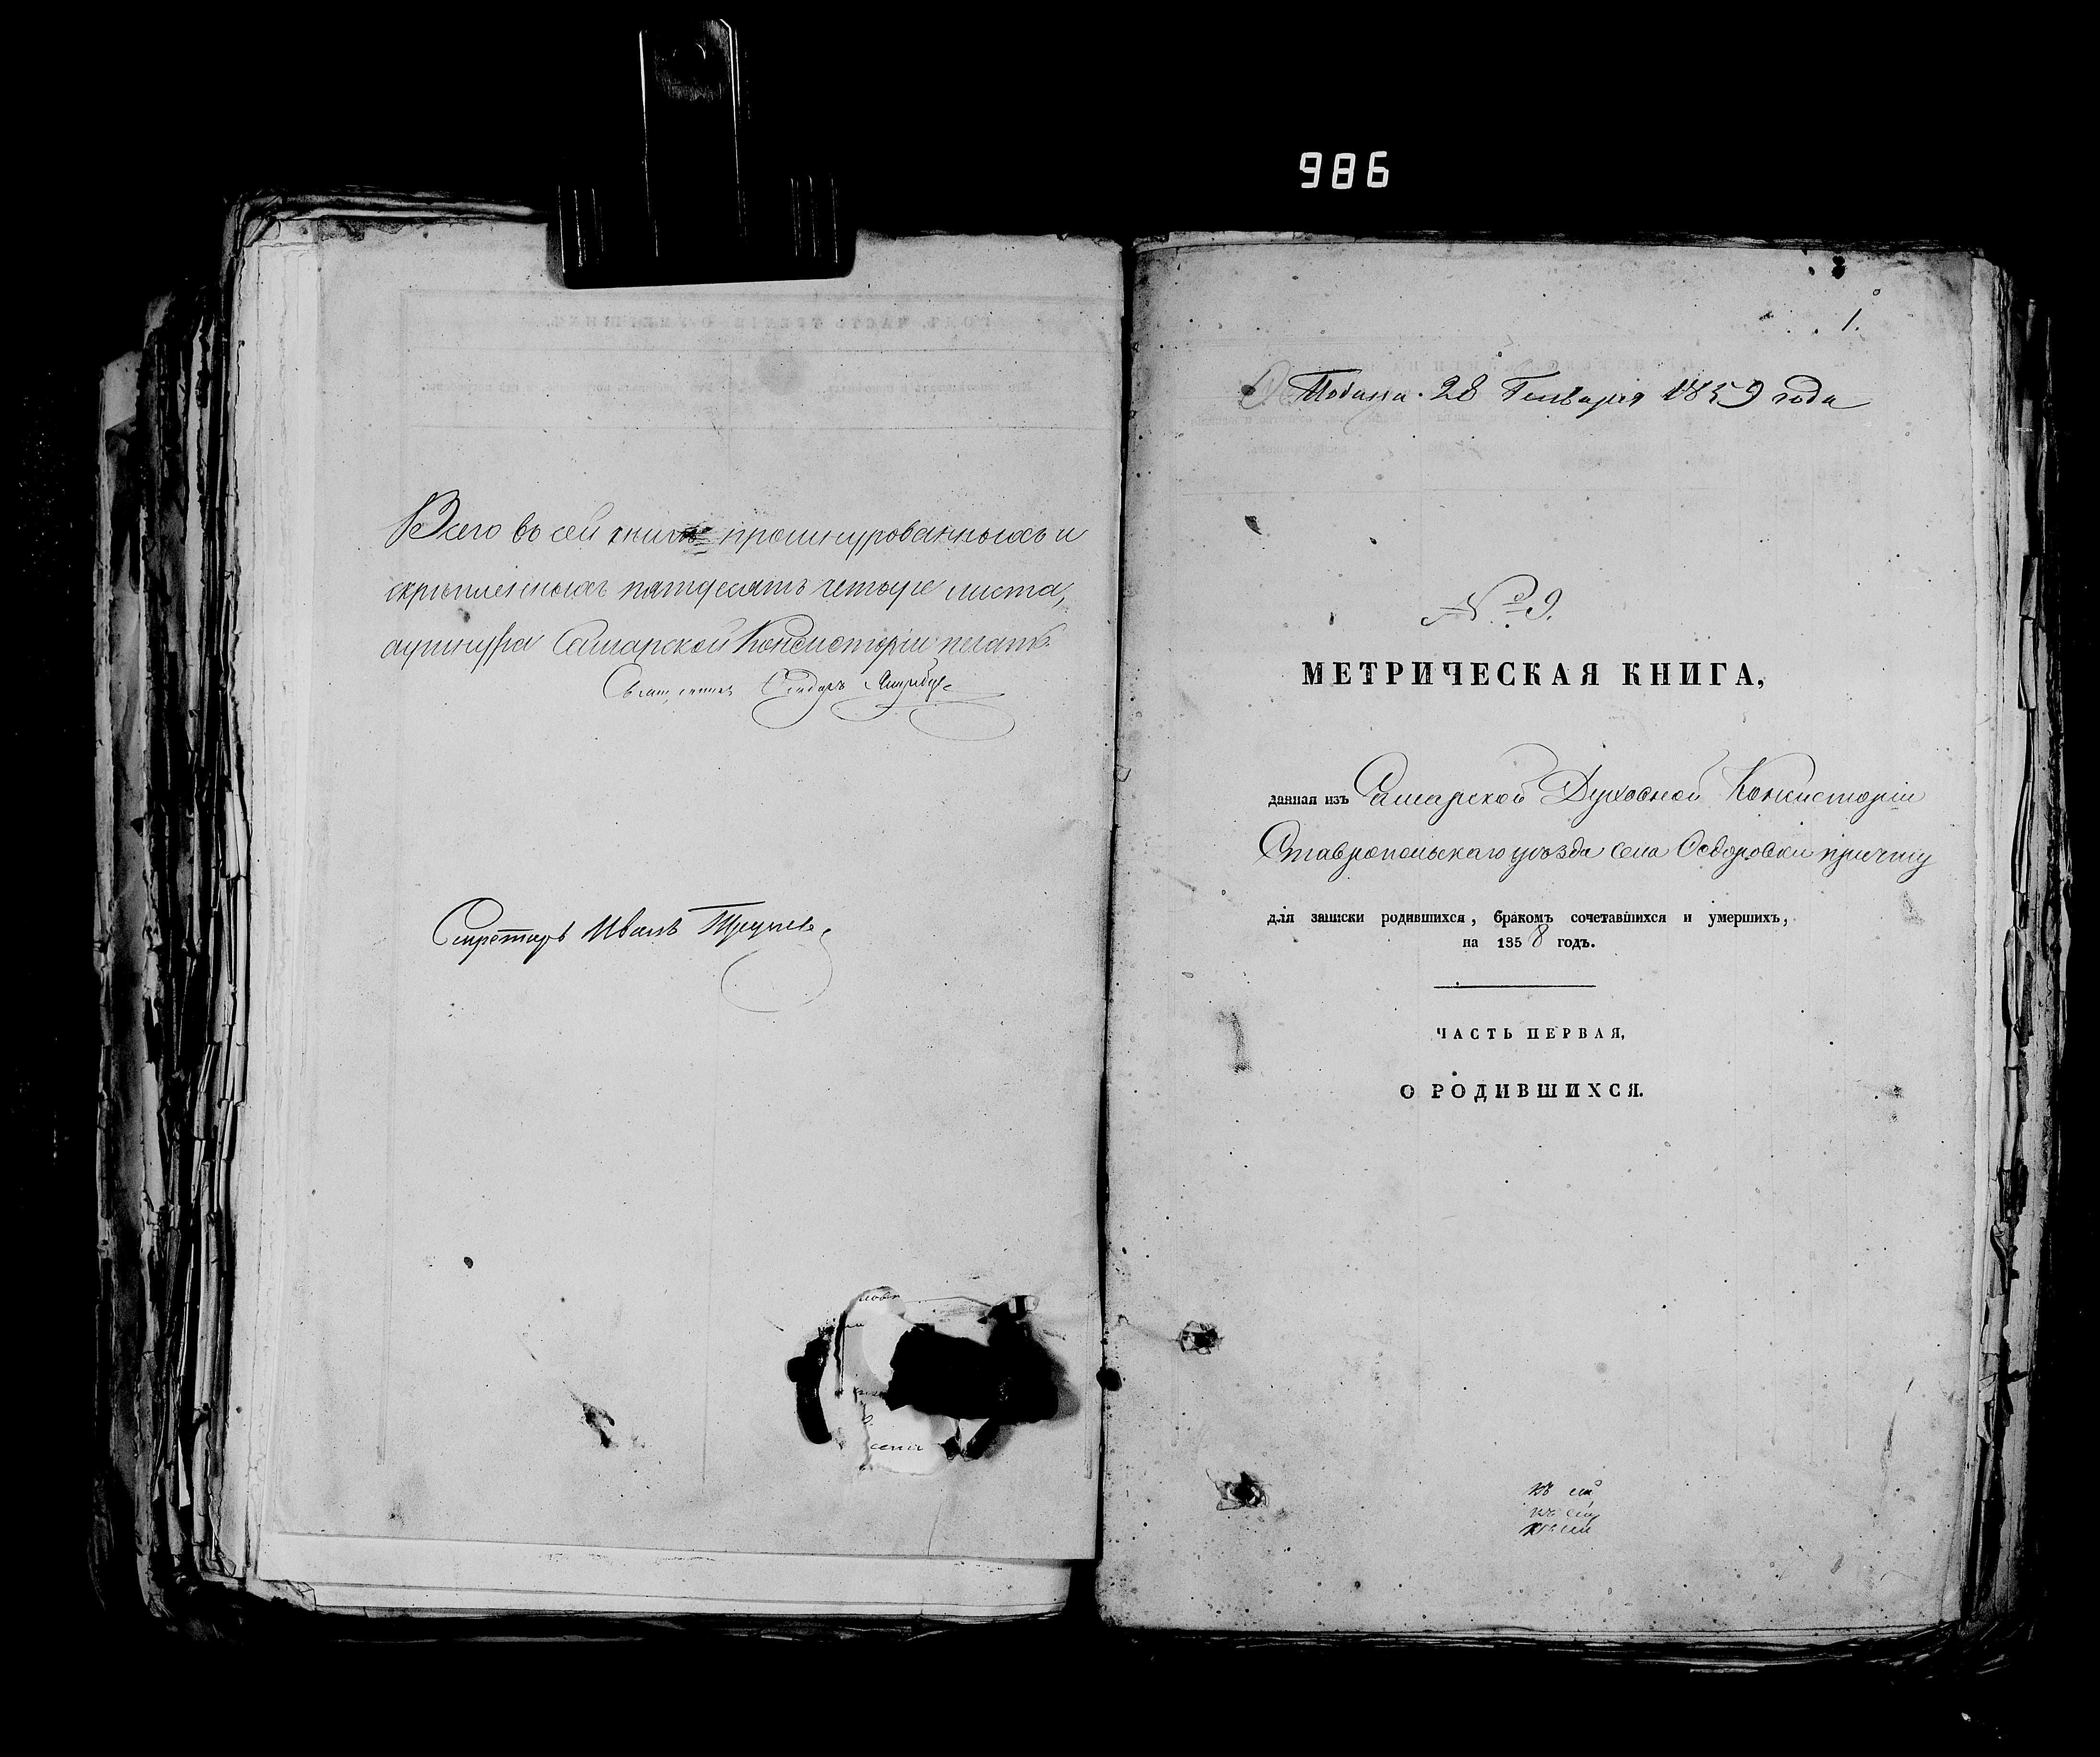 986
Всего въ сей книгѣ прошнурованныхъ и
скрѣпленныхъ пятдесятъ четыре листа,
а у шнура Самарской Консисторіи печать.
Священникъ
Секретарь Иванъ
1.
Подана 28 Генваря 1859 года
№ 9.
МЕТРИЧЕСКАЯ КНИГА,
данная изъ Самарской Духовной Консисторіи
Ставропольскаго уѣзда села Ѳедоровки причту
для записки родившихся, бракомъ сочетавшихся и умершихъ,
на 1858 годъ.
ЧАСТЬ ПЕРВАЯ,
О РОДИВШИХСЯ.
къ сей